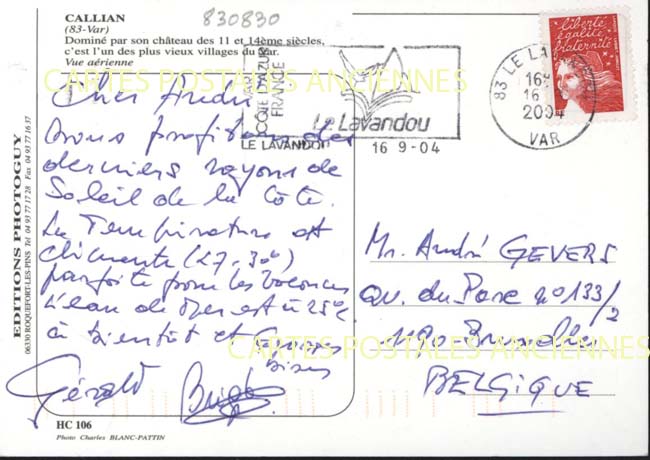 CALLIAN
830830
(83-Var)
Dominé par son château des 11 et 14ème siècles,
c'est l'un des plus vieux villages du Var.
Vue aérienne
CARTES POSTALES ANCIENNES
liberté
égalité
fraternité
COTE D'AZUR
FRANCE
Le Lavandou
LE LAVANDOU
16 9-04
83 LE LA
16 H
16
2004
VAR
Cher André
Nous profitons des
derniers rayons de
Soleil de la Côte.
La Température est
clémente (27-30°)
parfaite pour les vacances
L'eau de Mer est à 25°c
à bientôt et Grosses
Bises
Gérald
Mr. André GEVERS
Av. du Parc n° 133/2
1190 Bruxelles
BELGIQUE
CARTES POSTALES ANCIENNES
EDITIONS PHOTOGUY
06330 ROQUEFORT-LES-PINS Tel 04 93 77 17 28 Fax 04 93 77 16 37
HC 106
Photo Charles BLANC-PATTIN